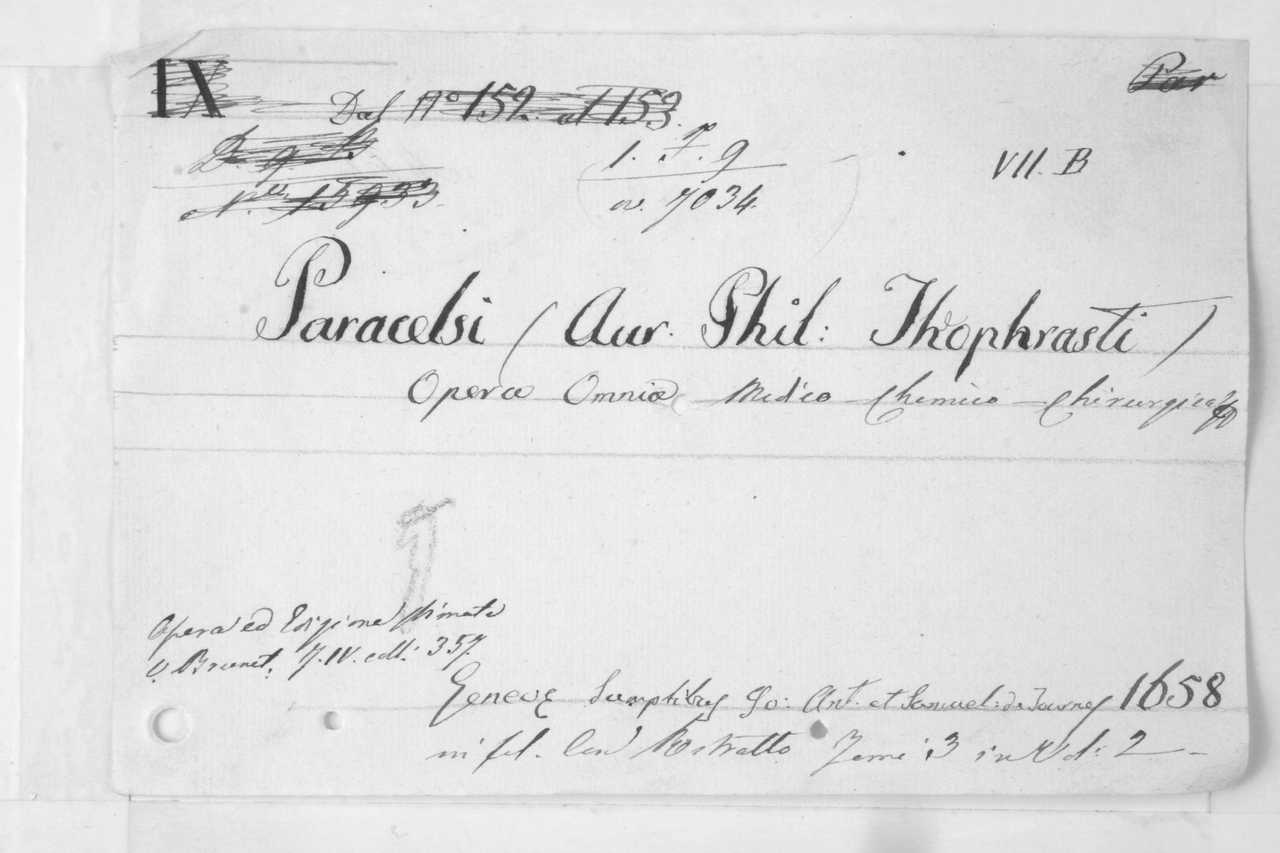 IX
Par
Dal N° 152. al 153.
1. F. 9
VII. B
N. 15933.
av. 7034.
Paracelsi (Aur. Phil: Theophrasti)
Opera Omnia Medico Chemico Chirurgica
Opera ed Edizione stimata
V. Brunet. T. IV. coll: 357
Genevæ Sumptibus Jo: Ant: et Samuel: de Tournes 1658
in fol. con Ritratto Tomi 3 in Vol: 2